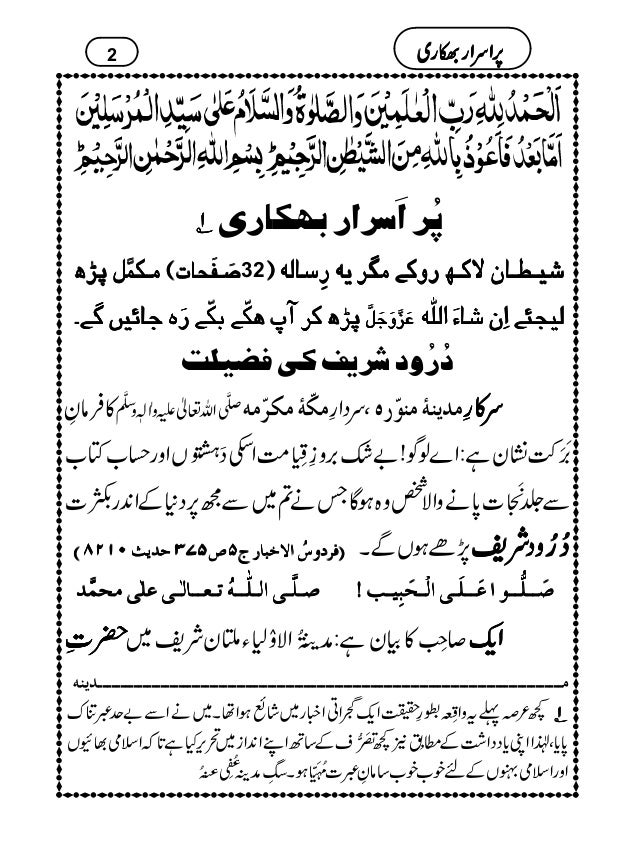 پراسرار بھکاری
2
اَلْحَمْدُ لِلّٰهِ رَبِّ الْعٰلَمِیْنَ وَالصَّلٰوةُ وَالسَّلَامُ عَلٰی سَیِّدِ الْمُرْسَلِیْنَ
اَمَّا بَعْدُ فَاَعُوْذُ بِاللّٰهِ مِنَ الشَّیْطٰنِ الرَّجِیْمِ ؕ بِسْمِ اللّٰهِ الرَّحْمٰنِ الرَّحِیْمِ ؕ
پُر اَسرار بھکاری ۱؎
شیطان لاکھ روکے مگر یہ رِسالہ (32صَفَحات) مکمَّل پڑھ
لیجئے اِن شاءَ اللہ عَزَّوَجَلَّ پڑھ کر آپ ھکّے بکّے رَہ جائیں گے۔
دُرُود شریف کی فضیلت
سرکارِ مدینۂ منوّرہ ، سردارِ مکّۂ مکرّمہ صلَّی اللہ تعالیٰ علیہ واٰلہٖ وسلَّم کا فرمانِ
بَرَکت نشان ہے: اے لوگو! بے شک بروزِ قِیامت اسکی دَہشتوں اور حساب کتاب
سے جلد نَجات پانے والا شخص وہ ہوگا جس نے تم میں سے مجھ پر دنیا کے اندر بکثرت
دُرُود شریف پڑھے ہوں گے۔ (فردوسُ الاخبار ج۵ص ۳۷۵ حدیث ۸۲۱۰)
صَلُّوا عَلَی الْحَبِیب! صلَّی اللّٰہُ تعالٰی علٰی محمَّد
ایک صاحِب کا بیان ہے: مدینۃُ الاؤلیاء ملتان شریف میں حضرتِ
مدینہ
۱؎ کچھ عرصہ پہلے یہ واقِعہ بطورِ حقیقت ایک گجراتی اخبار میں شائع ہوا تھا۔ میں نے اسے بے حد عبرتناک
پایا، لہٰذا اپنی یادداشت کے مطابِق نیز کچھ تصرُّف کے ساتھ اپنے انداز میں تحریر کیا ہے تاکہ اسلامی بھائیوں
اور اسلامی بہنوں کے لئے خوب خوب سامانِ عبرت مُہیّا ہو۔ سگِ مدینہ عُفِیَ عنہُ